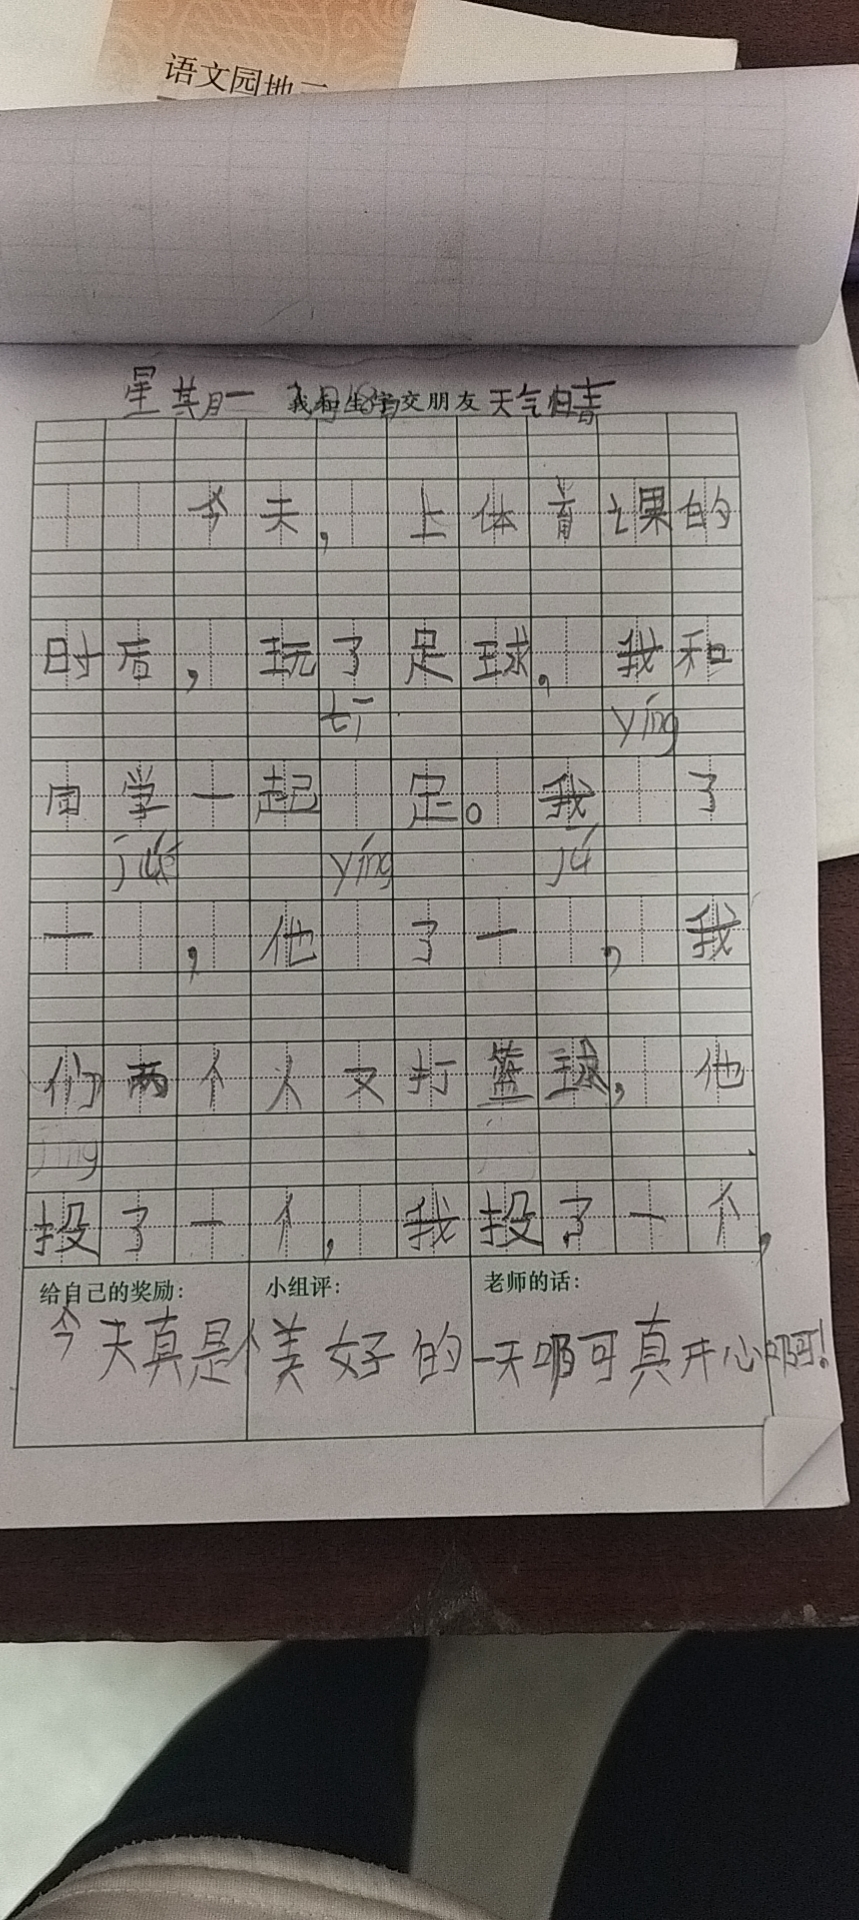 语文园地二
星其月一 我和生字交朋友 天气晴
今天，上体育课的
时后，玩了足球。我和
tī yíng
同学一起 足。我 了
júe yíng jú
一 ，他 了一 ，我
们两个人又打篮球，他
jīng
投了一个，我投了一个，
给自己的奖励： 小组评： 老师的话：
今天真是个美好的一天啊可真开心啊！